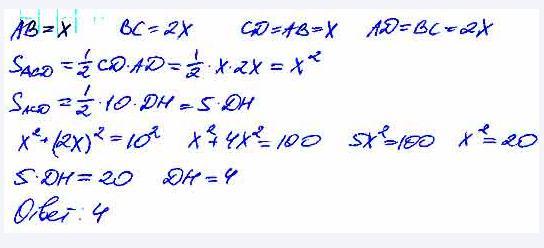 AB = x BC = 2x CD = AB = x AD = BC = 2x
S_ACD = 1/2 CD·AD = 1/2 · x · 2x = x²
S_ACD = 1/2 · 10 · DH = 5 · DH
x² + (2x)² = 10² x² + 4x² = 100 5x² = 100 x² = 20
5 · DH = 20 DH = 4
Ответ: 4